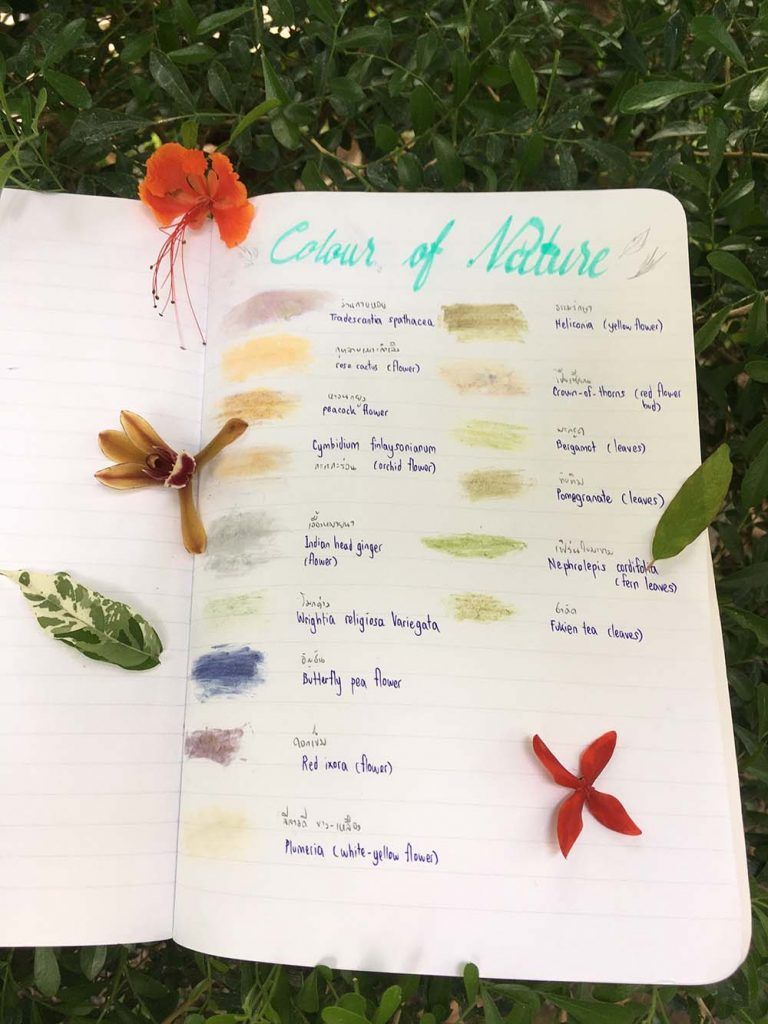 Colour of Nature
Tradescantia spathacea
rose cactus (flower)
peacock flower
Cymbidium finlaysonianum
(orchid flower)
Indian head ginger
(flower)
โมกด่าง
Wrightia religiosa Variegata
อัญชัน
Butterfly pea flower
ดอกเข็ม
Red ixora (flower)
ลีลาวดี ขาว-เหลือง
Plumeria (white-yellow flower)
ธรรมรักษา
Heliconia (yellow flower)
โป๊ยเซียน
Crown-of-thorns (red flower
bud)
มะกรูด
Bergamot (leaves)
ทับทิม
Pomegranate (leaves)
Nephrolepis cordifolia
(fern leaves)
Fukien tea (leaves)